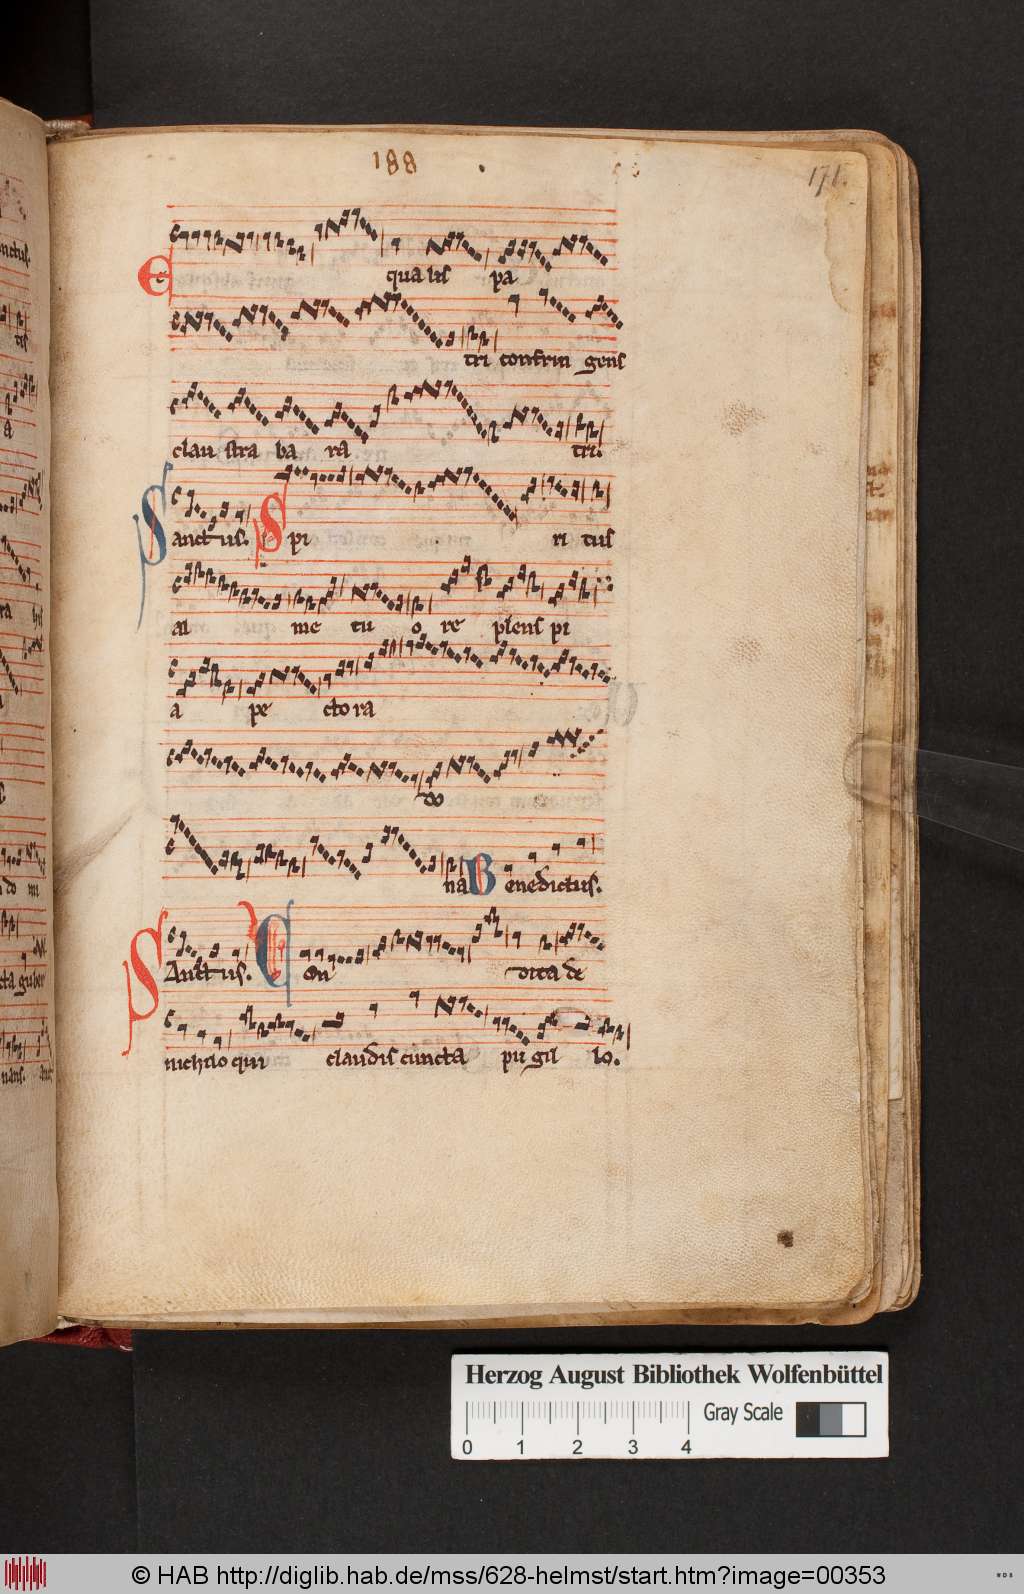 188
171.
E
qua lis pa
tri confrin gens
clau stra ba ra tri.
Sanctus. Spi ri tus
al me tu o re plens pi
a pe cto ra
do
na Benedictus.
SAnctus. Con dita de
nichilo qui claudis cuncta pu gil lo.
Herzog August Bibliothek Wolfenbüttel
Gray Scale
0 1 2 3 4
© HAB http://diglib.hab.de/mss/628-helmst/start.htm?image=00353